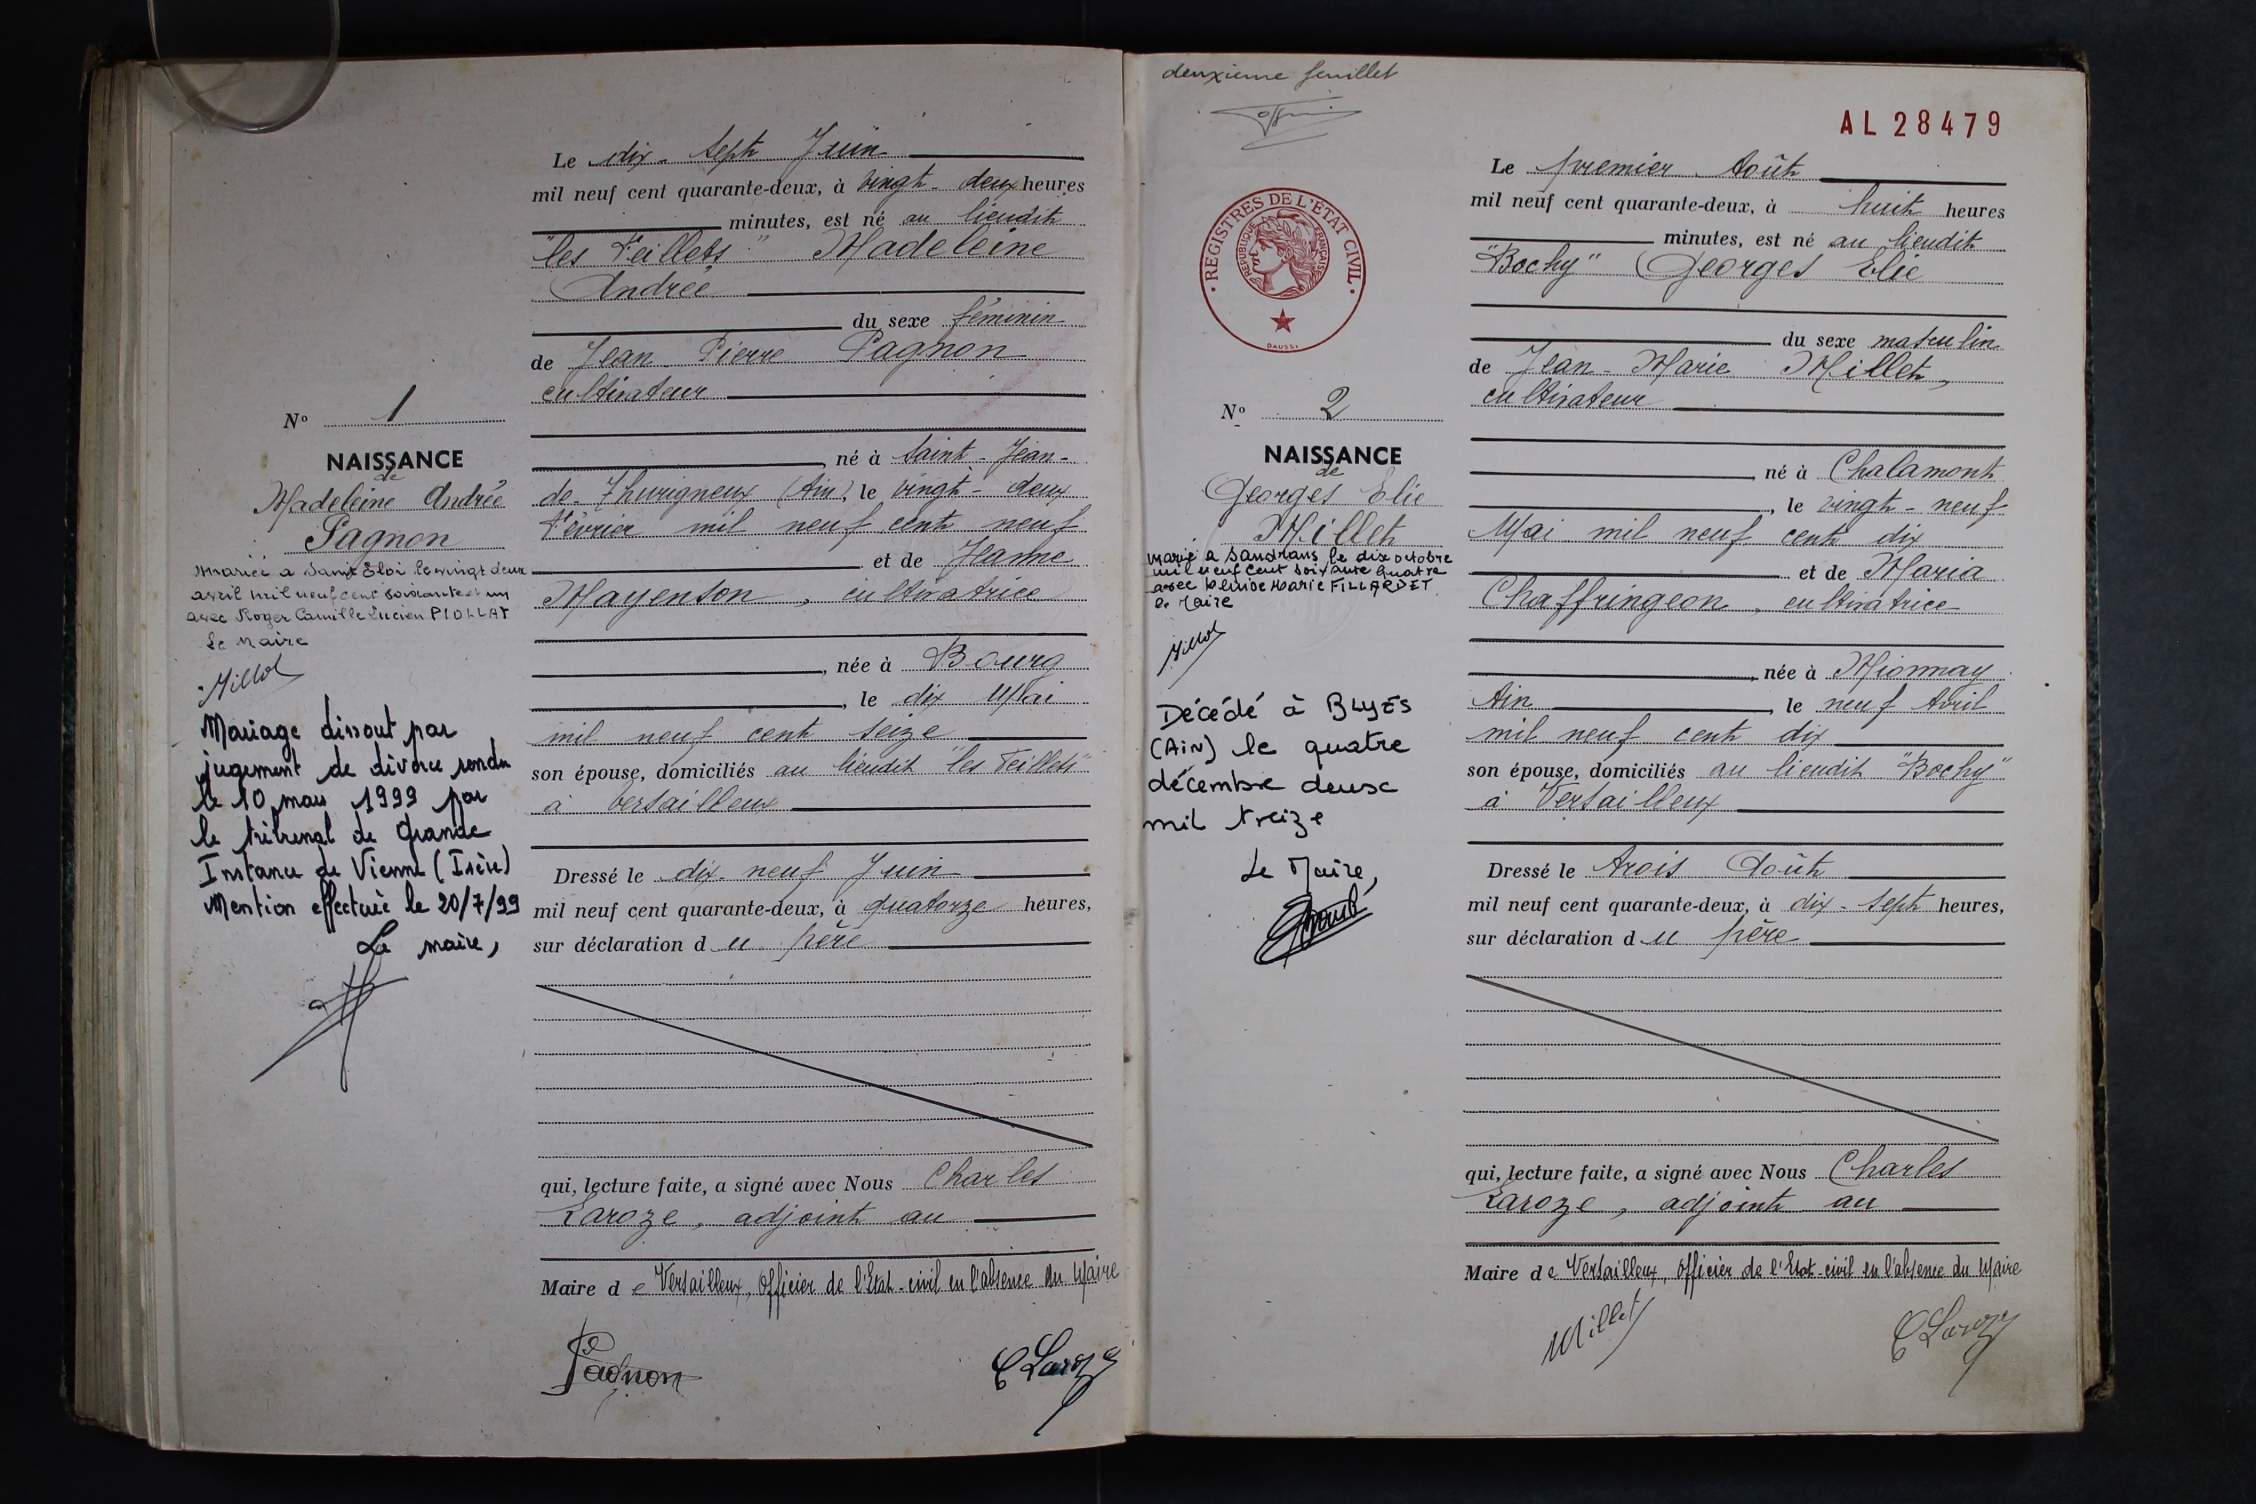 Le dix-sept Juin
mil neuf cent quarante-deux, à vingt-deux heures
minutes, est né au lieudit
"les Feillets" Madeleine
Andrée
du sexe féminin
de Jean Pierre Pagnon
cultivateur
né à Saint-Jean-
de-Thurigneux (Ain), le vingt-deux
Février mil neuf cent neuf
et de Jeanne
Mayenson, cultivatrice
, née à Bourg
, le dix Mai
mil neuf cent seize
son épouse, domiciliés au lieudit "les Feillets"
à Versailleux
Dressé le dix-neuf Juin
mil neuf cent quarante-deux, à quatorze heures,
sur déclaration du père
qui, lecture faite, a signé avec Nous Charles
Laroze, adjoint au
Maire de Versailleux, officier de l'Etat-civil en l'absence du Maire
Pagnon
C Laroze
No 1
NAISSANCE
de
Madeleine Andrée
Pagnon
Mariée à Saint Eloi le vingt deux
avril mil neuf cent soixante et un
avec Roger Camille Lucien PIOLLAT
Le Maire
Millet
Mariage dissout par
jugement de divorce rendu
le 10 mars 1999 par
le tribunal de Grande
Instance de Vienne (Isère)
Mention effectuée le 20/7/99
Le maire,
deuxième feuillet
AL 28479
REGISTRES DE L'ETAT CIVIL
REPUBLIQUE FRANÇAISE
DAUSSI
Le premier Août
mil neuf cent quarante-deux, à huit heures
minutes, est né au lieudit
"Bochy" Georges Elie
du sexe masculin
de Jean-Marie Millet,
cultivateur
, né à Chalamont
, le vingt-neuf
Mai mil neuf cent dix
et de Maria
Chaffringeon, cultivatrice
, née à Mionnay
Ain, le neuf Avril
mil neuf cent dix
son épouse, domiciliés au lieudit "Bochy"
à Versailleux
Dressé le trois Août
mil neuf cent quarante-deux, à dix-sept heures,
sur déclaration du père
qui, lecture faite, a signé avec Nous Charles
Laroze, adjoint au
Maire de Versailleux, officier de l'Etat-civil en l'absence du Maire
Millet
C Laroze
No 2
NAISSANCE
de
Georges Elie
Millet
Marié à Sandrans le dix octobre
mil neuf cent soixante quatre
avec Marie FILLARDET
le Maire
Millet
Décédé à BLYES
(AIN) le quatre
décembre deux
mil treize
Le Maire,